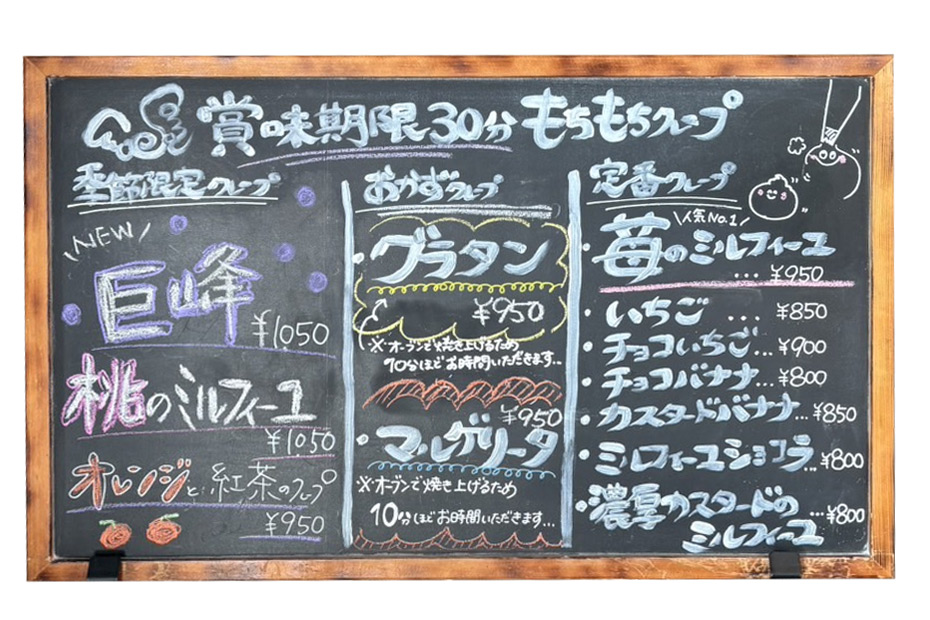 賞味期限30分もちもちクレープ
季節限定クレープ
\NEW/
巨峰
¥1050
桃のミルフィーユ
¥1050
オレンジと紅茶のクレープ
¥950
おかずクレープ
・グラタン
¥950
※オーブンで焼き上げるため
10分ほどお時間いただきます…
¥950
・マルゲリータ
※オーブンで焼き上げるため
10分ほどお時間いただきます…
定番クレープ
\人気No.1/
・苺のミルフィーユ
… ¥950
・いちご … ¥850
・チョコいちご… ¥900
・チョコバナナ… ¥800
・カスタードバナナ… ¥850
・ミルフィーユショコラ… ¥800
・濃厚カスタードの
ミルフィーユ
… ¥800